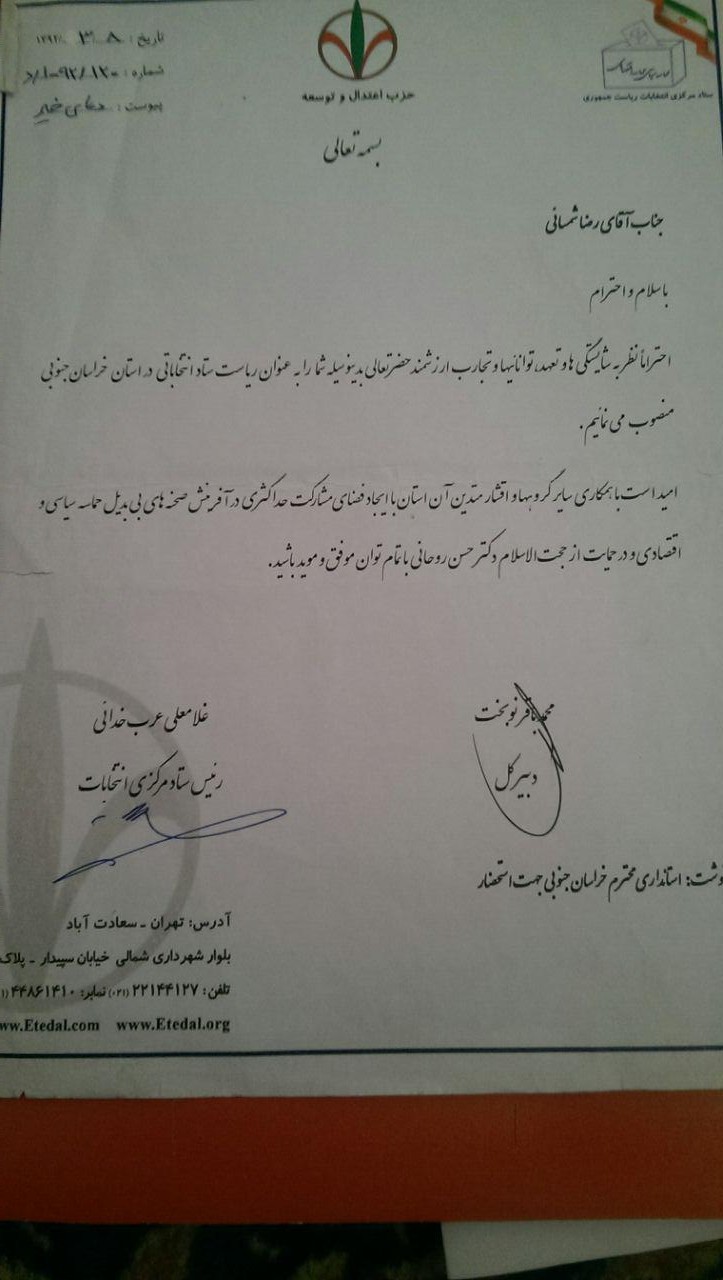 تاریخ: ۱۳۹۲/۰۳/۰۸
شماره:
پیوست: دعای خیر
حزب اعتدال و توسعه
ستاد مرکزی انتخابات ریاست جمهوری
بسمه تعالی
جناب آقای رضا شمسائی
با سلام و احترام
احتراماً نظر به شایستگی ها و تعهد، توانائیها و تجارب ارزشمند حضرتعالی بدینوسیله شما را به عنوان ریاست ستاد انتخاباتی در استان خراسان جنوبی
منصوب می نمائیم.
امید است با همکاری سایر گروهها و اقشار متدین آن استان با ایجاد فضای مشارکت حداکثری در آفرینش صحنه های بی بدیل حماسه سیاسی و
اقتصادی و در حمایت از حجت الاسلام دکتر حسن روحانی با تمام توان موفق و موید باشید.
محمدباقر نوبخت
دبیر کل
غلامعلی عرب خدائی
رئیس ستاد مرکزی انتخابات
وشت: استانداری محترم خراسان جنوبی جهت استحضار
آدرس: تهران - سعادت آباد
بلوار شهرداری شمالی خیابان سپیدار - پلاک
تلفن: ۲۲۱۴۴۱۲۷ (۰۲۱) نمابر: ۴۴۸۶۱۴۱۰
ww.Etedal.com www.Etedal.org